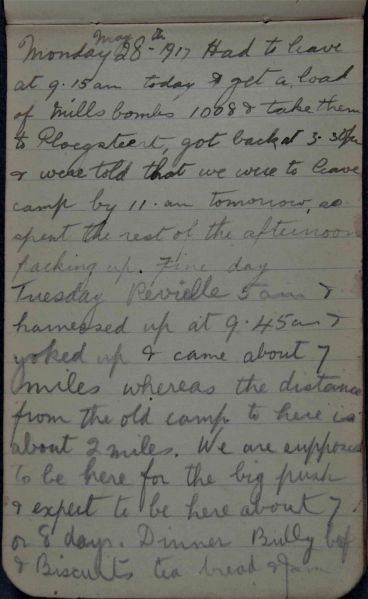 Monday May 28th 1917 Had to leave
at 9.15am today & get a load
of Mills bombs 1008 & take them
to Ploegsteert, got back at 3.30pm
& were told that we were to leave
camp by 11.am tomorrow, so
spent the rest of the afternoon
packing up. Fine day
Tuesday Réveille 5am &
harnessed up at 9.45am &
yoked up & came about 7
miles whereas the distance
from the old camp to here is
about 2 miles. We are supposed
to be here for the big push
& expect to be here about 7
or 8 days. Dinner Bully beef
& Biscuits tea bread & Jam